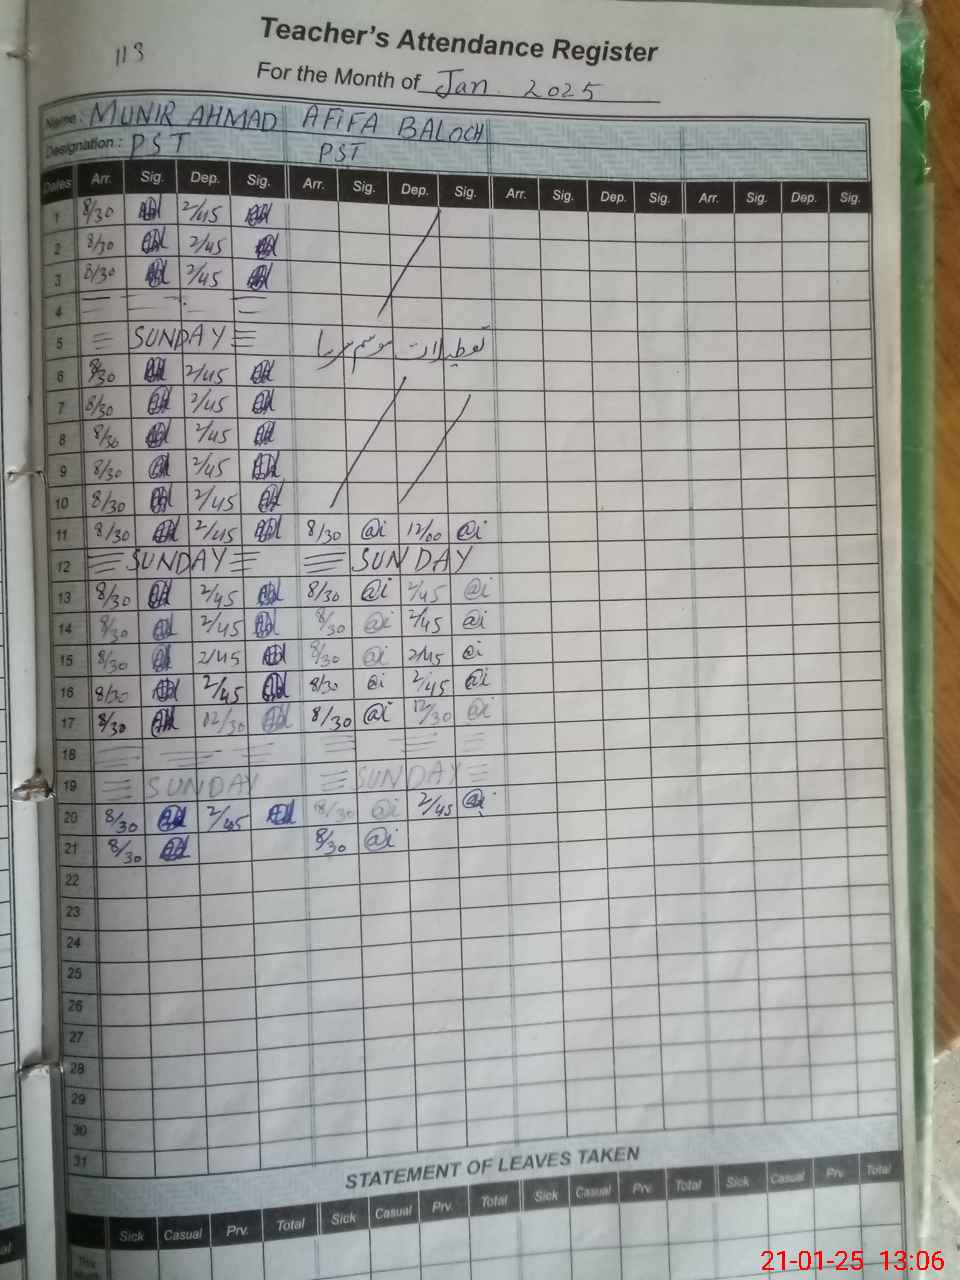 113
Teacher's Attendance Register
For the Month of Jan. 2025
Name : MUNIR AHMAD AFIFA BALOCH
Designation : PST PST
Dates Arr. Sig. Dep. Sig. Arr. Sig. Dep. Sig. Arr. Sig. Dep. Sig. Arr. Sig. Dep. Sig.
1 8/30 2/45
2 8/30 2/45
3 8/30 2/45
4
5 SUNDAY تعطیلات موسم سرما
6 8/30 2/45
7 8/30 2/45
8 8/30 2/45
9 8/30 2/45
10 8/30 2/45
11 8/30 2/45 8/30 @i 12/00 @i
12 SUNDAY SUNDAY
13 8/30 2/45 8/30 @i 2/45 @i
14 8/30 2/45 8/30 @i 2/45 @i
15 8/30 2/45 8/30 @i 2/45 @i
16 8/30 2/45 8/30 @i 2/45 @i
17 8/30 12/30 8/30 @i 12/30 @i
18
19 SUNDAY SUNDAY
20 8/30 2/45 8/30 @i 2/45 @i
21 8/30 8/30 @i
22
23
24
25
26
27
28
29
30
31
STATEMENT OF LEAVES TAKEN
Sick Casual Prv. Total Sick Casual Prv. Total Sick Casual Prv. Total Sick Casual Prv. Total
This
21-01-25 13:06